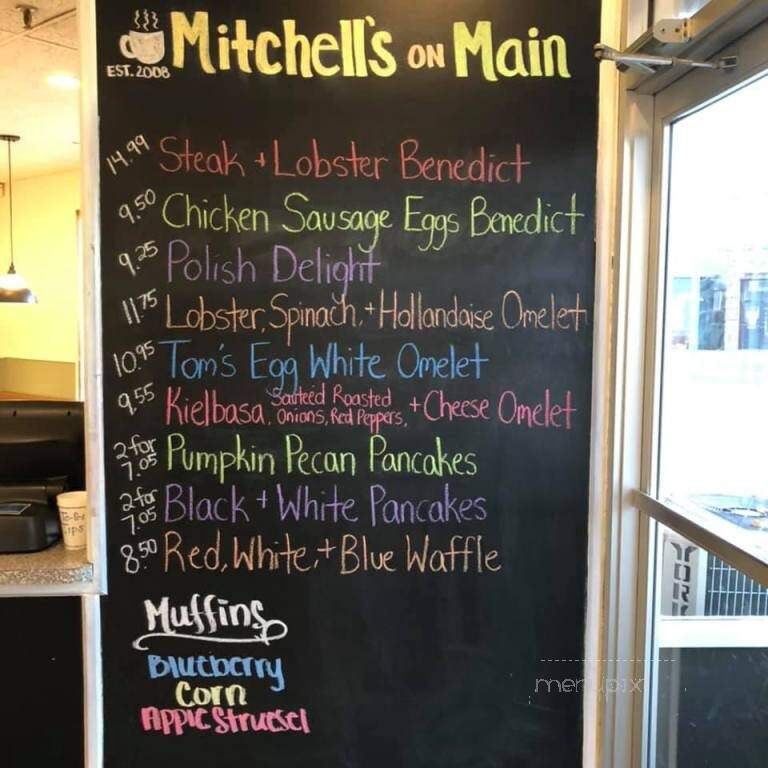 Mitchell's ON Main
EST. 2008
14.99 Steak + Lobster Benedict
9.50 Chicken Sausage Eggs Benedict
9.25 Polish Delight
11.75 Lobster, Spinach, + Hollandaise Omelet
10.95 Tom's Egg White Omelet
9.55 Kielbasa, Sauteed Roasted Onions, Red Peppers, + Cheese Omelet
2 for 7.05 Pumpkin Pecan Pancakes
2 for 7.05 Black + White Pancakes
8.50 Red, White, + Blue Waffle
Muffins
Blueberry
Corn
Apple Struesel
To-Go
Tips
YORK
menupix